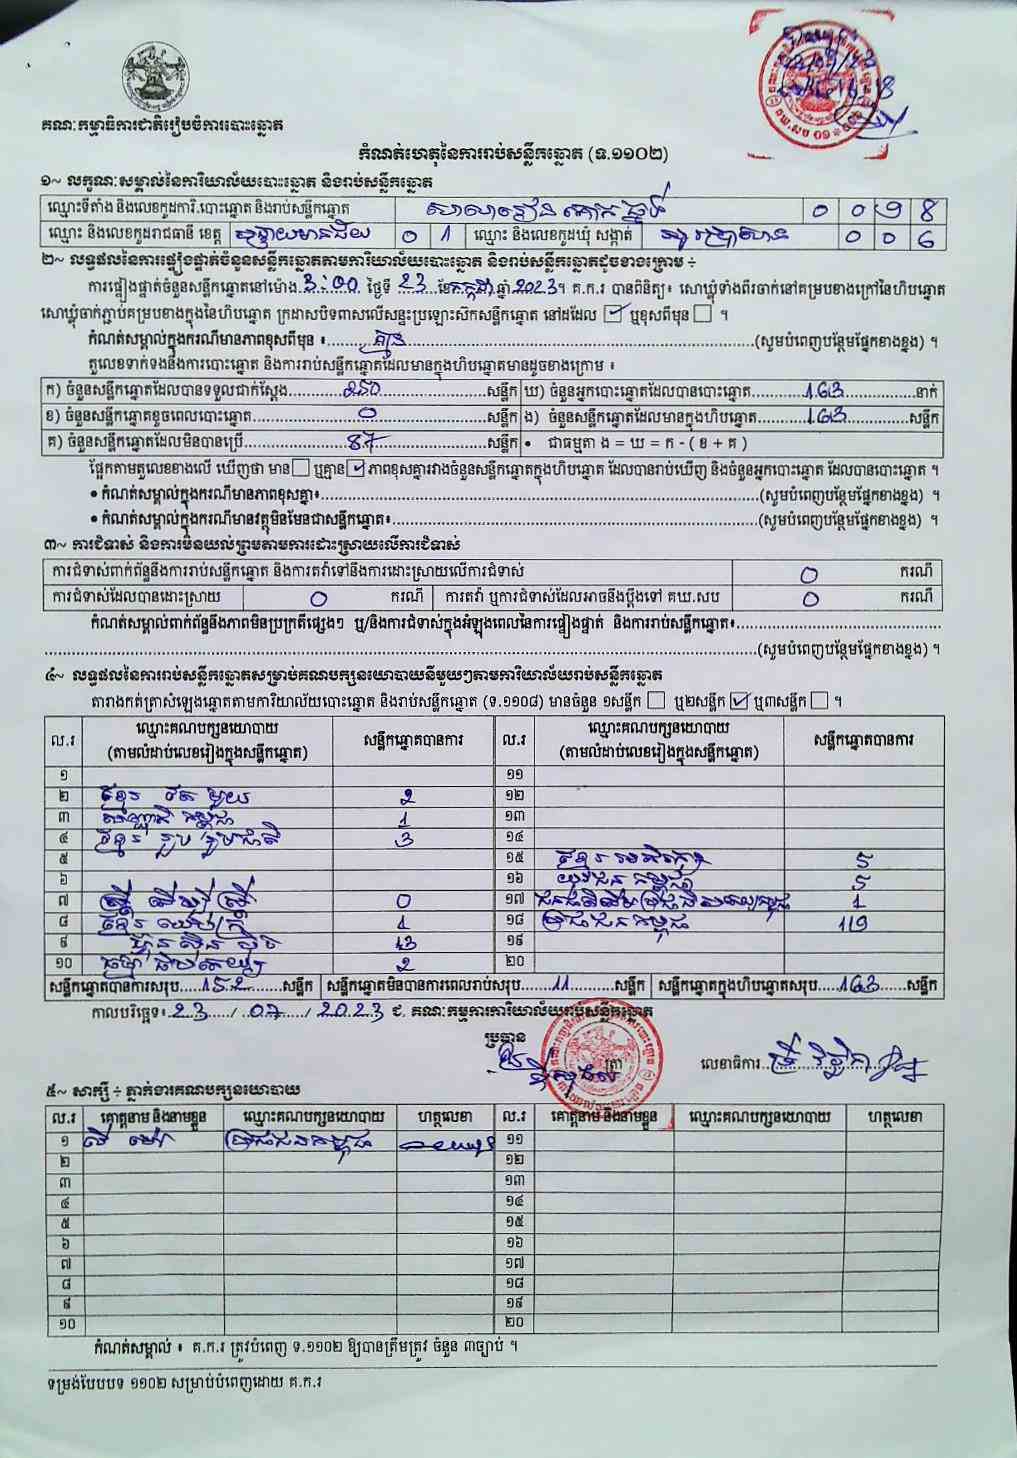 គណៈកម្មាធិការជាតិរៀបចំការបោះឆ្នោត
កំណត់ហេតុនៃការរាប់សន្លឹកឆ្នោត (ទ.១១០២)
១~ លក្ខណៈសម្គាល់នៃការិយាល័យបោះឆ្នោត និងរាប់សន្លឹកឆ្នោត
ឈ្មោះទីតាំង និងលេខកូដការិ.បោះឆ្នោត និងរាប់សន្លឹកឆ្នោត សាលារៀន គោក ធ្នង់
ឈ្មោះ និងលេខកូដរាជធានី ខេត្ត បន្ទាយមានជ័យ 0 1 ឈ្មោះ និងលេខកូដឃុំ សង្កាត់ 0 0 6
២~ លទ្ធផលនៃការផ្ទៀងផ្ទាត់ចំនួនសន្លឹកឆ្នោតតាមការិយាល័យបោះឆ្នោត និងរាប់សន្លឹកឆ្នោតដូចខាងក្រោម ÷
ការផ្ទៀងផ្ទាត់ចំនួនសន្លឹកឆ្នោតនៅម៉ោង 3:00 ថ្ងៃទី 23 ខែ កក្កដា ឆ្នាំ 2023។ គ.ក.រ បានពិនិត្យ៖ សោឃ្លុំទាំងពីរចាក់នៅគម្របខាងក្រៅនៃហិបឆ្នោត
សោឃ្លុំចាក់ភ្ជាប់គម្របខាងក្នុងនៃហិបឆ្នោត ក្រដាសបិទពាសលើសន្ទះប្រឡោះសឹកសន្លឹកឆ្នោត នៅដដែល ☑ ឬខុសពីមុន ☐ ។
កំណត់សម្គាល់ក្នុងករណីមានភាពខុសពីមុន ៖ គ្មាន (សូមបំពេញបន្ថែមផ្នែកខាងខ្នង) ។
តួលេខទាក់ទងនឹងការបោះឆ្នោត និងការរាប់សន្លឹកឆ្នោតដែលមានក្នុងហិបឆ្នោតមានដូចខាងក្រោម ៖
ក) ចំនួនសន្លឹកឆ្នោតដែលបានទទួលជាក់ស្តែង 250 សន្លឹក ឃ) ចំនួនអ្នកបោះឆ្នោតដែលបានបោះឆ្នោត 163 នាក់
ខ) ចំនួនសន្លឹកឆ្នោតខូចពេលបោះឆ្នោត 0 សន្លឹក ង) ចំនួនសន្លឹកឆ្នោតដែលមានក្នុងហិបឆ្នោត 163 សន្លឹក
គ) ចំនួនសន្លឹកឆ្នោតដែលមិនបានប្រើ 87 សន្លឹក • ជាធម្មតា ង = ឃ = ក - ( ខ + គ )
ផ្អែកតាមតួលេខខាងលើ ឃើញថា មាន ☐ ឬគ្មាន ☑ ភាពខុសគ្នារវាងចំនួនសន្លឹកឆ្នោតក្នុងហិបឆ្នោត ដែលបានរាប់ឃើញ និងចំនួនអ្នកបោះឆ្នោត ដែលបានបោះឆ្នោត ។
• កំណត់សម្គាល់ក្នុងករណីមានភាពខុសគ្នា៖ (សូមបំពេញបន្ថែមផ្នែកខាងខ្នង) ។
• កំណត់សម្គាល់ក្នុងករណីមានវត្ថុមិនមែនជាសន្លឹកឆ្នោត៖ (សូមបំពេញបន្ថែមផ្នែកខាងខ្នង) ។
៣~ ការជំទាស់ និងការមិនយល់ព្រមតាមការដោះស្រាយលើការជំទាស់
ការជំទាស់ពាក់ព័ន្ធនឹងការរាប់សន្លឹកឆ្នោត និងការតវ៉ាទៅនឹងការដោះស្រាយលើការជំទាស់ 0 ករណី
ការជំទាស់ដែលបានដោះស្រាយ 0 ករណី ការតវ៉ា ឬការជំទាស់ដែលអាចនឹងប្តឹងទៅ គឃ.សប 0 ករណី
កំណត់សម្គាល់ពាក់ព័ន្ធនឹងភាពមិនប្រក្រតីផ្សេងៗ ឬ/និងការជំទាស់ក្នុងអំឡុងពេលនៃការផ្ទៀងផ្ទាត់ និងការរាប់សន្លឹកឆ្នោត៖
(សូមបំពេញបន្ថែមផ្នែកខាងខ្នង) ។
៤~ លទ្ធផលនៃការរាប់សន្លឹកឆ្នោតសម្រាប់គណបក្សនយោបាយនីមួយៗតាមការិយាល័យរាប់សន្លឹកឆ្នោត
តារាងកត់ត្រាសំឡេងឆ្នោតតាមការិយាល័យបោះឆ្នោត និងរាប់សន្លឹកឆ្នោត (ទ.១១០៨) មានចំនួន ១សន្លឹក ☐ ឬ២សន្លឹក ☑ ឬ៣សន្លឹក ☐ ។
ល.រ ឈ្មោះគណបក្សនយោបាយ (តាមលំដាប់លេខរៀងក្នុងសន្លឹកឆ្នោត) សន្លឹកឆ្នោតបានការ ល.រ ឈ្មោះគណបក្សនយោបាយ (តាមលំដាប់លេខរៀងក្នុងសន្លឹកឆ្នោត) សន្លឹកឆ្នោតបានការ
១ ១១
២ ខ្មែរ តែ មួយ 2 ១២
៣ 1 ១៣
៤ ខ្មែរ រួប រួមជាតិ 3 ១៤
៥ ១៥ ខ្មែរ 5
៦ ១៦ យុវជន កម្ពុជា 5
៧ ស្ត្រី ដើម្បី ស្ត្រី 0 ១៧ 1
៨ 1 ១៨ ប្រជាជនកម្ពុជា 119
៩ ហ៊្វុនស៊ិនប៉ិច 13 ១៩
១០ ធម្មាធិបតេយ្យ 2 ២០
សន្លឹកឆ្នោតបានការសរុប 152 សន្លឹក សន្លឹកឆ្នោតមិនបានការពេលរាប់សរុប 11 សន្លឹក សន្លឹកឆ្នោតក្នុងហិបឆ្នោតសរុប 163 សន្លឹក
កាលបរិច្ឆេទ៖ 23 / 07 / 2023 ជ. គណៈកម្មការការិយាល័យរាប់សន្លឹកឆ្នោត
ប្រធាន
លេខាធិការ
៥~ សាក្សី ÷ ភ្នាក់ងារគណបក្សនយោបាយ
ល.រ គោត្តនាម និងនាមខ្លួន ឈ្មោះគណបក្សនយោបាយ ហត្ថលេខា ល.រ គោត្តនាម និងនាមខ្លួន ឈ្មោះគណបក្សនយោបាយ ហត្ថលេខា
១ ប្រជាជនកម្ពុជា ១១
២ ១២
៣ ១៣
៤ ១៤
៥ ១៥
៦ ១៦
៧ ១៧
៨ ១៨
៩ ១៩
១០ ២០
កំណត់សម្គាល់ ៖ គ.ក.រ ត្រូវបំពេញ ទ.១១០២ ឱ្យបានត្រឹមត្រូវ ចំនួន ៣ច្បាប់ ។
ទម្រង់បែបបទ ១១០២ សម្រាប់បំពេញដោយ គ.ក.រ